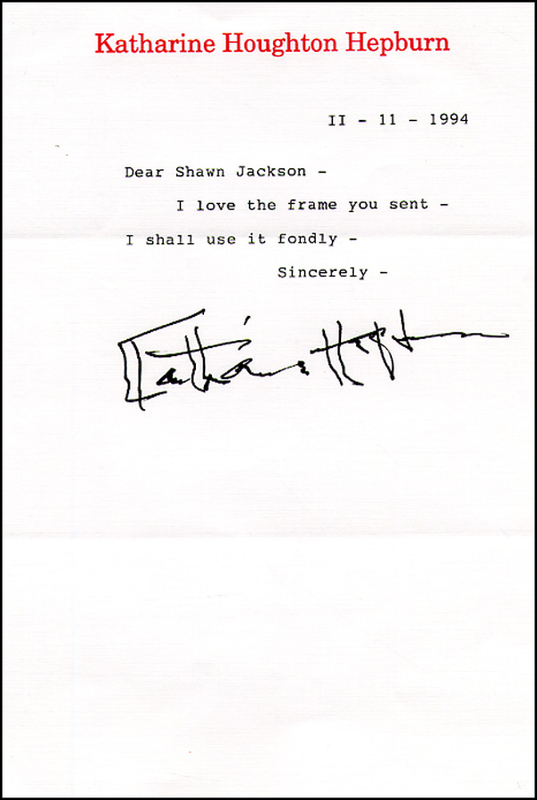 Katharine Houghton Hepburn
II - 11 - 1994
Dear Shawn Jackson -
I love the frame you sent -
I shall use it fondly -
Sincerely -
Katharine Hepburn